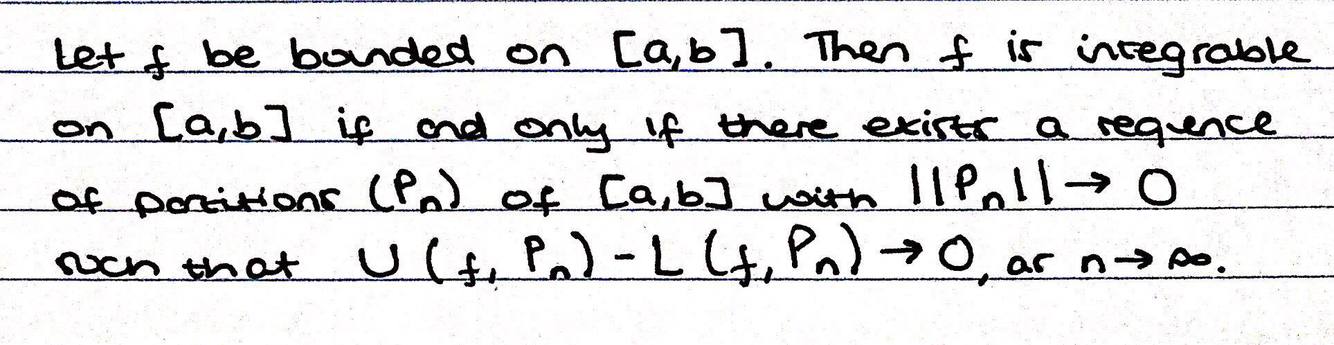 Let f be bounded on [a,b]. Then f is integrable
on [a,b] if and only if there exists a sequence
of partitions (Pn) of [a,b] with ||Pn|| → 0
such that U(f, Pn) - L(f, Pn) → 0, as n → ∞.